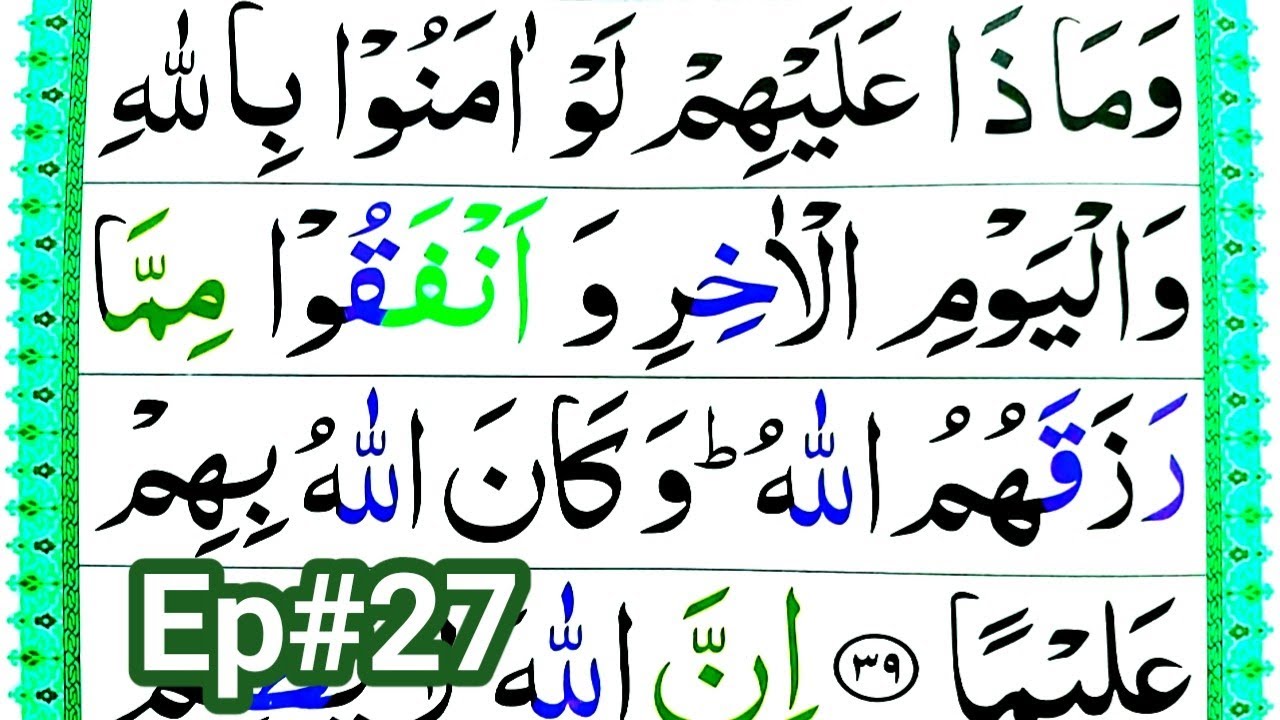 وَمَاذَا عَلَيْهِمْ لَوْ اٰمَنُوْا بِاللّٰهِ
وَالْيَوْمِ الْاٰخِرِ وَ اَنْفَقُوْا مِمَّا
رَزَقَهُمُ اللّٰهُ ؕ وَ كَانَ اللّٰهُ بِهِمْ
عَلِيْمًا ۝۳۹ اِنَّ اللّٰهَ
Ep#27